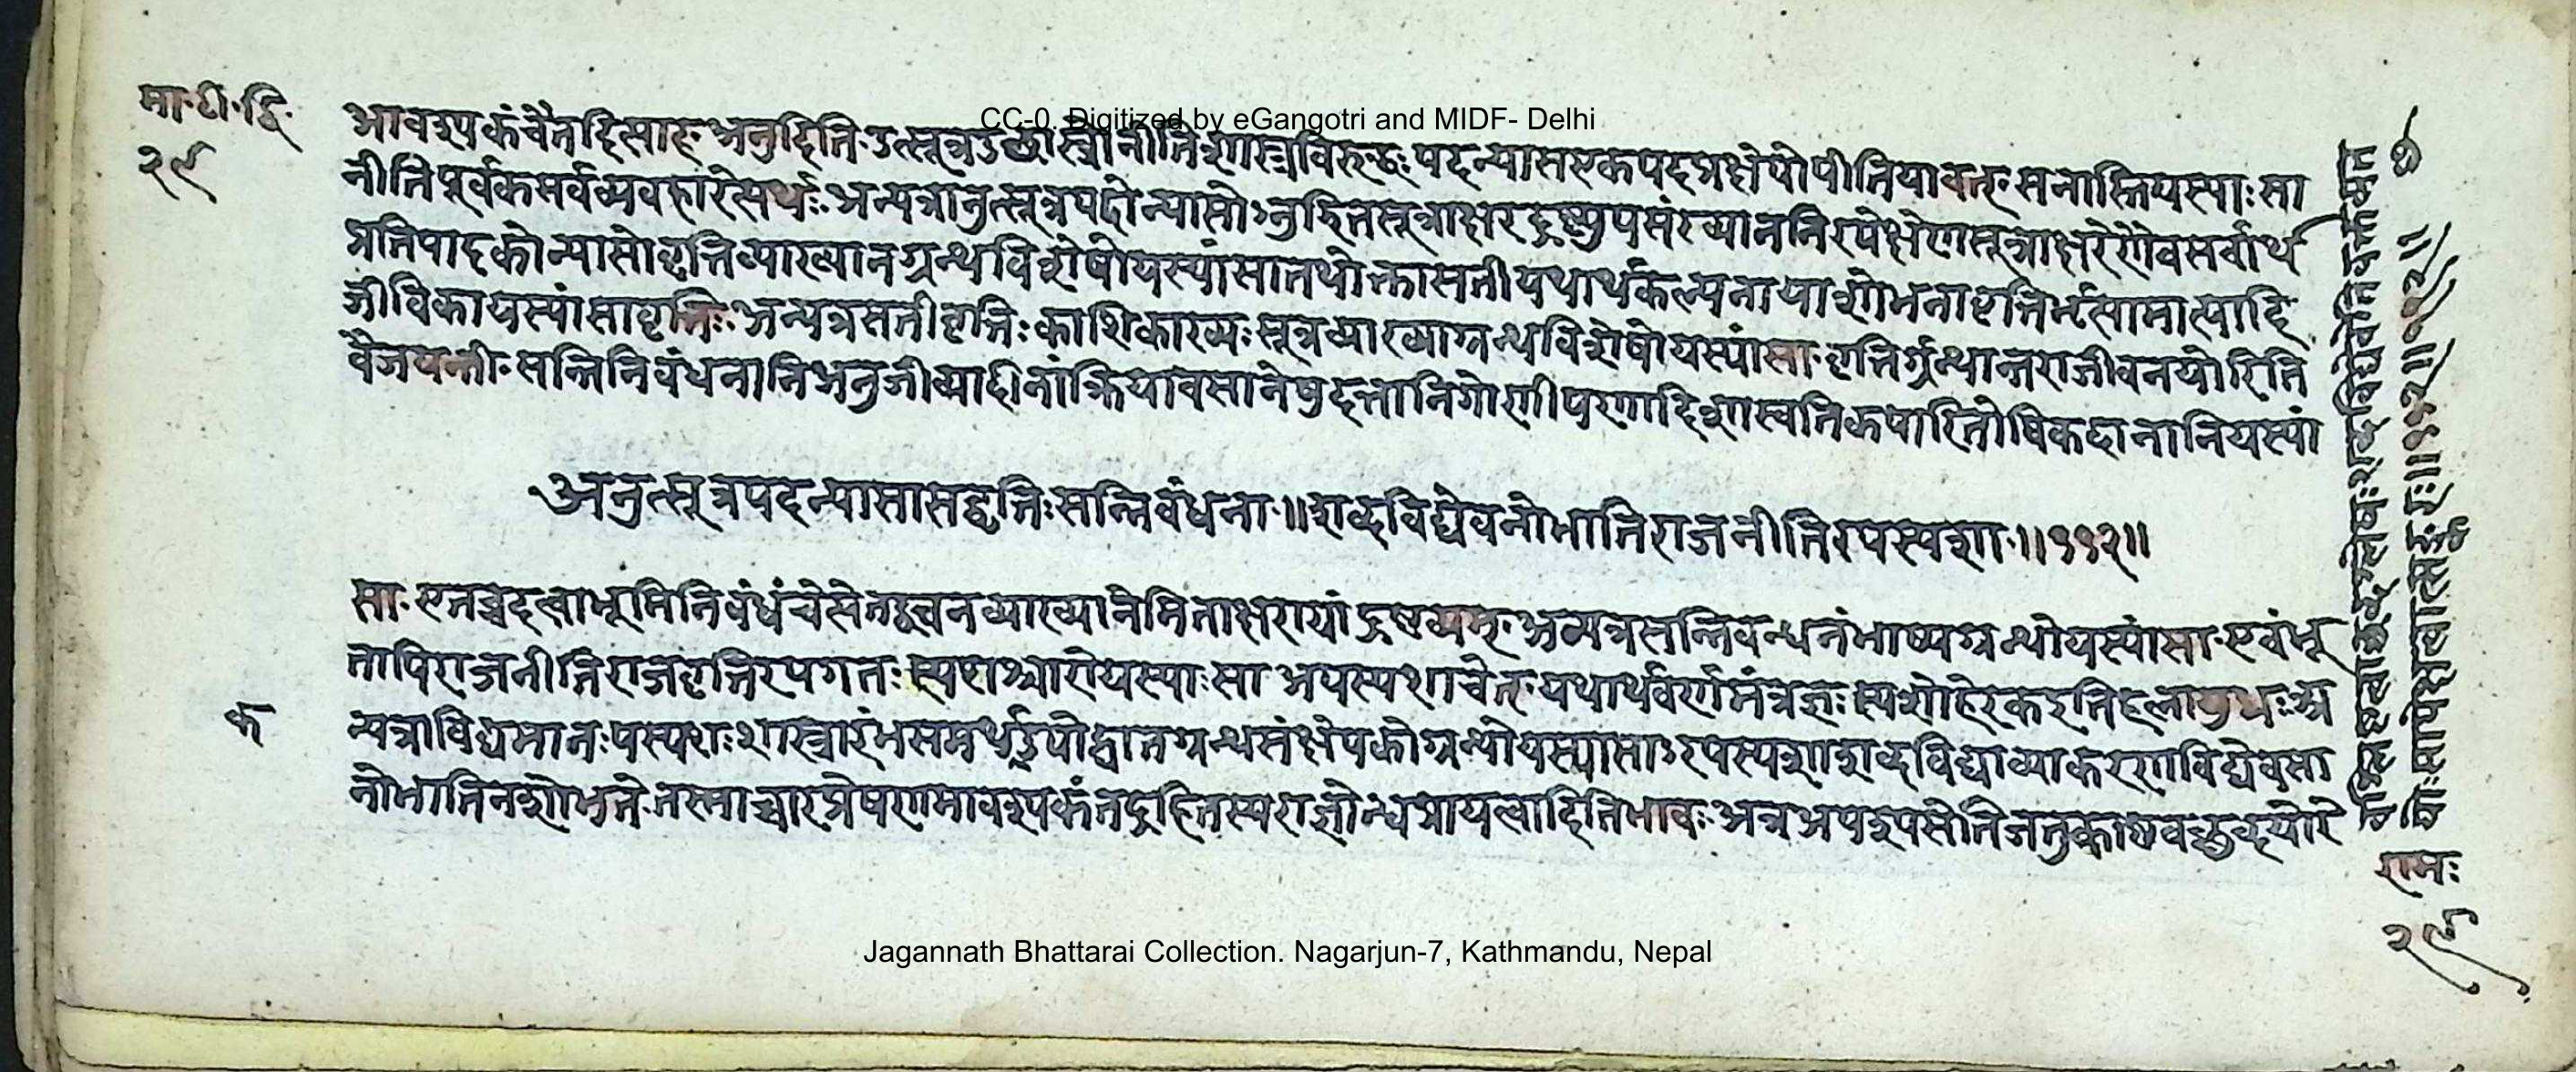 मा.टी.द्वि.
२९
CC-0. Digitized by eGangotri and MIDF- Delhi
आवश्यकं चैतदित्याह. अनुदिति. उत्सूत्र उच्छास्त्रो नीतिशास्त्रविरुद्धः पदन्यास एकपदप्रक्षेपोपीति यावत्. स नास्ति यस्याः सा
नीतिपूर्वकसर्वव्यवहारेत्यर्थः. अन्यत्रानुत्सूत्रपदो न्यासोऽनु सूत्राक्षर संख्याननिरपेक्षेण सूत्राक्षरेरेणैव सर्वार्थ
प्रतिपादको न्यासो वृत्तिव्याख्यानग्रन्थविशेषो यस्यां सा तथोक्ता सती यथार्थकल्पनाया शोभना वृत्तिर्भृत्यामात्यादि
जीविका यस्यां सा वृत्तिः. अन्यत्र सती वृत्तिः काशिकाख्यः सूत्रव्याख्याग्रन्थविशेषो यस्यां सा. वृत्तिर्ग्रन्थान्तराजीवनयोरिति
वैजयन्ती. सन्ति निबंधनानि अनुजीव्यादीनां क्रियावसानेषु दत्तानि गो दिशाश्वतिकपारितोषिकदानानि यस्यां
अनुत्सूत्रपदन्यासा सद्वृत्तिः सन्निबंधना.॥ शब्दविद्येव नो भाति राजनीतिरपस्पशा.॥११२॥
सा. एतच्च दत्वा भूमिनिबंधं चेत्येतद्वचनव्याख्याने मिताक्षरायां द्रष्टव्यम्. अन्यत्र सन्निबन्धनं भाष्यग्रन्थो यस्यां सा. एवंभू
तापि राजनीति राजवृत्तिरपगतः स्पशश्चारो यस्याः सा अपस्पशा चेत्. यथार्थवर्णमंत्रज्ञः स्पशो हरेक इति हलायुधः. अ
क
न्यत्राविद्यमानः पस्पशः शास्त्रारंभसमर्थ उपोद्घातग्रन्थसंक्षेपको ग्रन्थो यस्यासाऽरपस्पशा शब्दविद्या व्याकरणविद्येव सा
नो भाति न शोभते. तस्माच्चारप्रेषणमावश्यकं तद्रहितस्य राज्ञोन्धप्रायत्वादिति भावः. अत्र अपशपसेति जतुकाष्ठवच्छब्दयोरे
रामः
२९
Jagannath Bhattarai Collection. Nagarjun-7, Kathmandu, Nepal